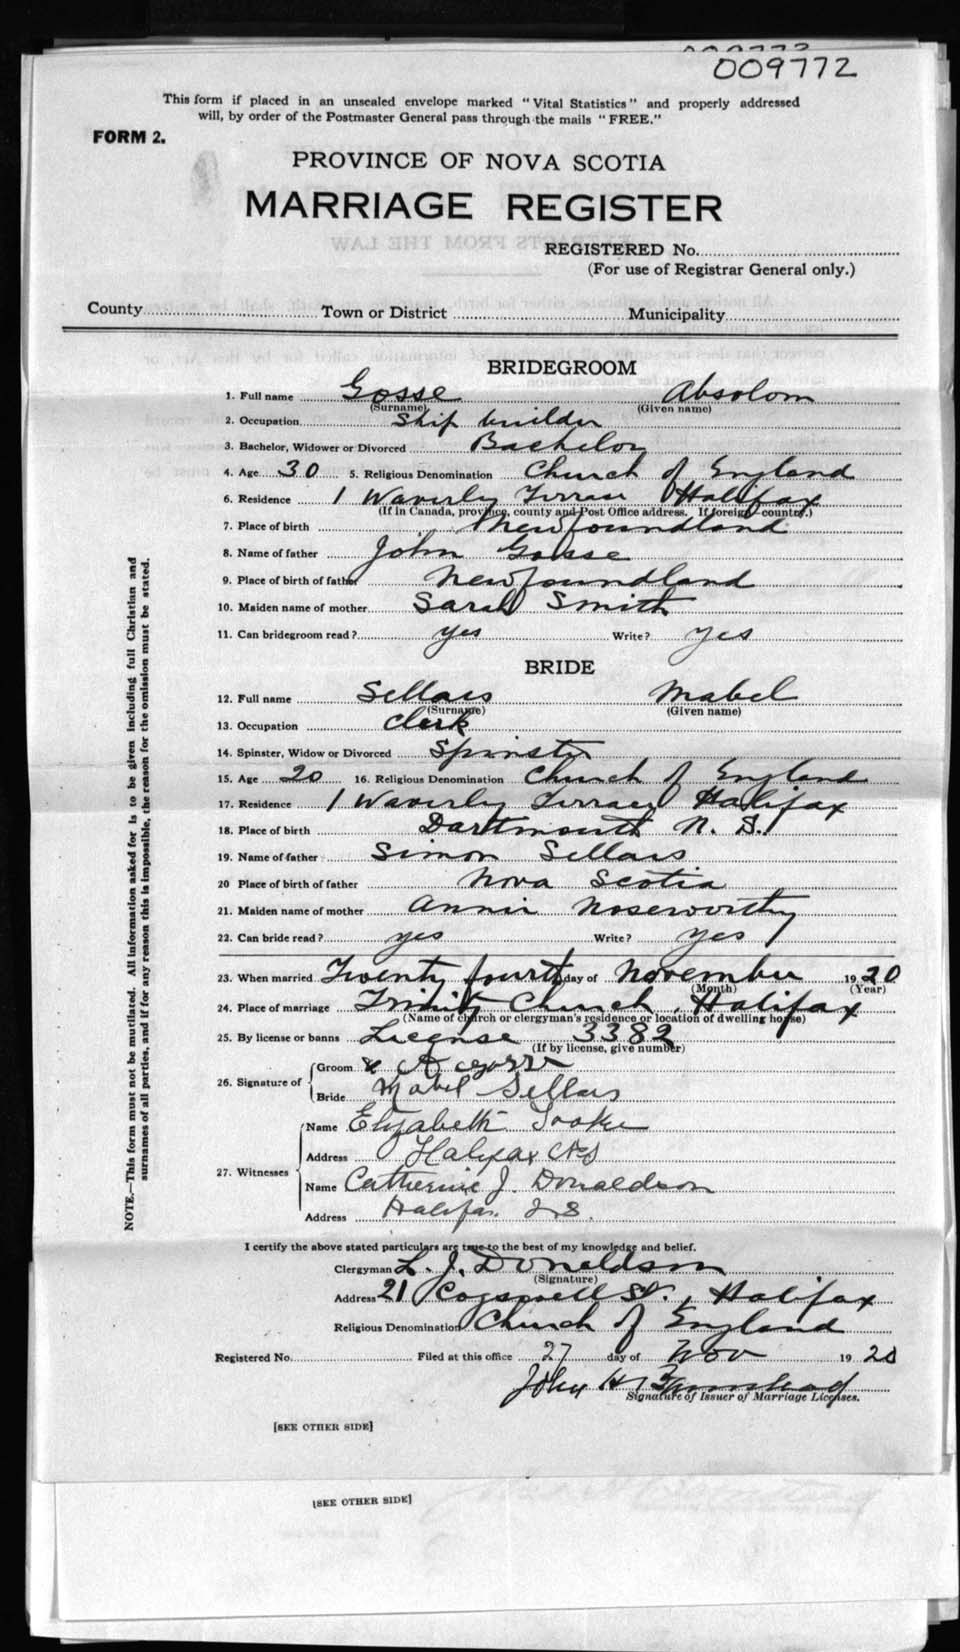 009772
This form if placed in an unsealed envelope marked "Vital Statistics" and properly addressed
will, by order of the Postmaster General pass through the mails "FREE."
FORM 2.
PROVINCE OF NOVA SCOTIA
MARRIAGE REGISTER
REGISTERED No.
(For use of Registrar General only.)
County Town or District Municipality
BRIDEGROOM
1. Full name Gosse Absolom
(Surname) (Given name)
2. Occupation Ship builder
3. Bachelor, Widower or Divorced Bachelor
4. Age 30 5. Religious Denomination Church of England
6. Residence 1 Waverly Terrace Halifax
(If in Canada, province, county and Post Office address. If foreign country.)
7. Place of birth Newfoundland
8. Name of father John Gosse
9. Place of birth of father Newfoundland
10. Maiden name of mother Sarah Smith
11. Can bridegroom read? yes Write? yes
BRIDE
12. Full name Sellars Mabel
(Surname) (Given name)
13. Occupation Clerk
14. Spinster, Widow or Divorced Spinster
15. Age 20 16. Religious Denomination Church of England
17. Residence 1 Waverly Terrace Halifax
18. Place of birth Dartmouth N. S.
19. Name of father Simon Sellars
20 Place of birth of father Nova Scotia
21. Maiden name of mother Annie Noseworthy
22. Can bride read? yes Write? yes
23. When married Twenty fourth day of November 1920
(Month) (Year)
24. Place of marriage Trinity Church, Halifax
(Name of church or clergyman's residence or location of dwelling house)
25. By license or banns License 3382
(If by license, give number)
26. Signature of Groom x A
Bride Mabel Sellars
27. Witnesses Name Elizabeth
Address Halifax NS
Name Catherine J. Donaldson
Address Halifax N.S.
I certify the above stated particulars are true to the best of my knowledge and belief.
Clergyman L. J. Donaldson
(Signature)
Address 21 Cogswell St., Halifax
Religious Denomination Church of England
Registered No. Filed at this office 27 day of Nov 1920
John H
Signature of Issuer of Marriage Licenses.
[SEE OTHER SIDE]
[SEE OTHER SIDE]
NOTE.—This form must not be mutilated. All information asked for is to be given including full Christian and
surnames of all parties, and if for any reason this is impossible, the reason for the omission must be stated.